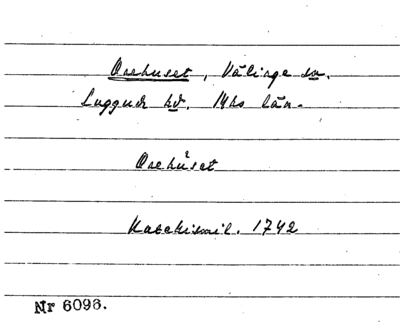 Orehuset, Välinge sn.
Luggude hd. Mhs län.
Orehůset
Katekismil. 1742
Nr 6096.